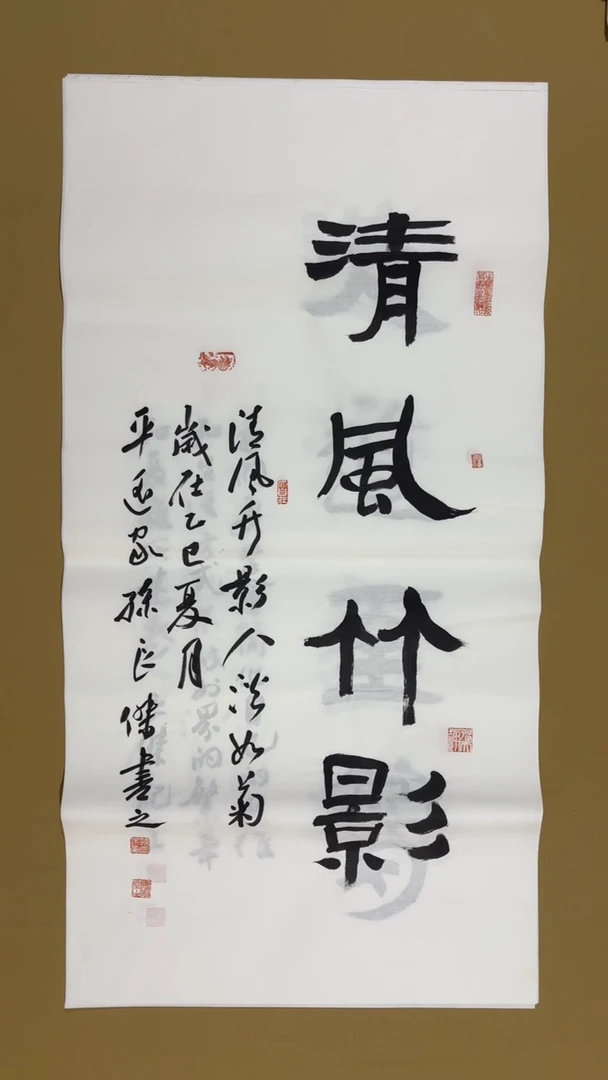 清風竹影
清風竹影人淡如菊
歲在乙巳夏月
平遥家孫良傑書之